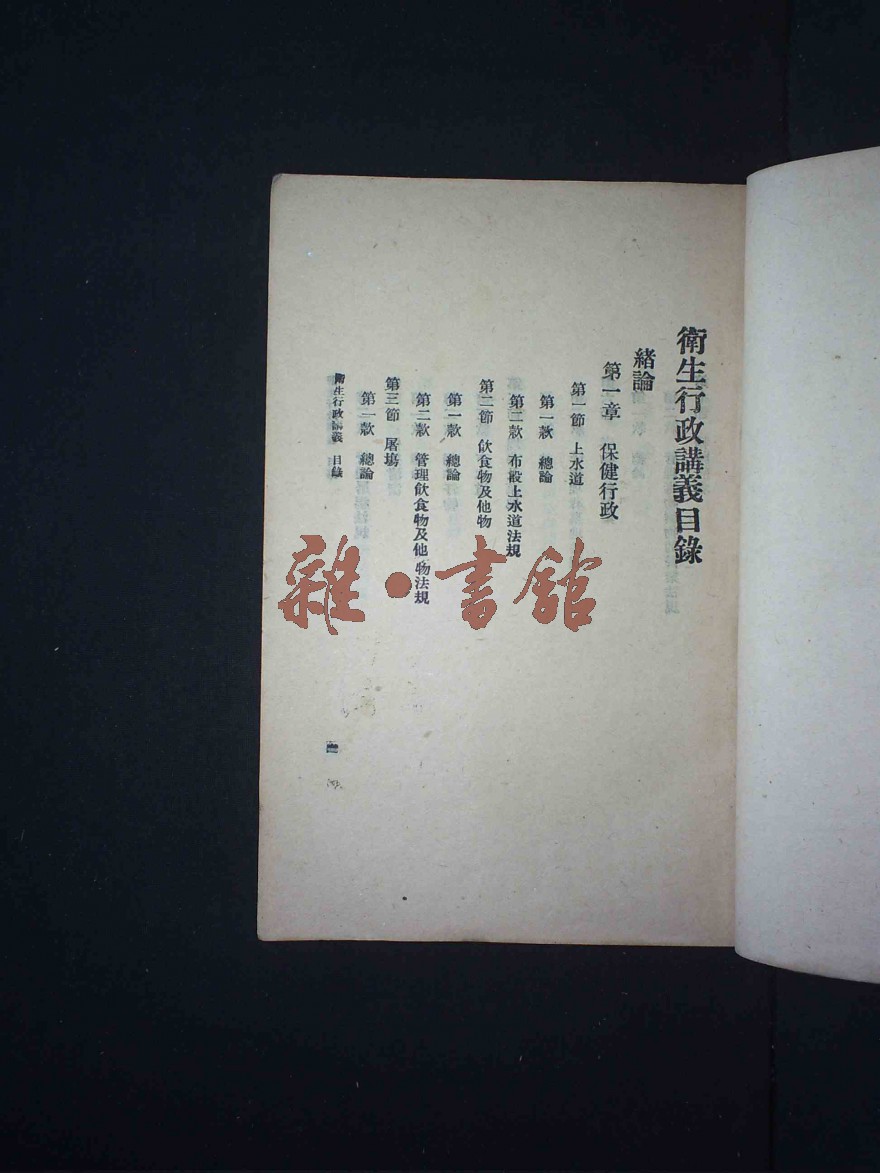 衛生行政講義目錄
緒論
第一章 保健行政
第一節 上水道
第一款 總論
第二款 布設上水道法規
第二節 飲食物及他物
第一款 總論
第二款 管理飲食物及他物法規
第三節 屠塲
第一款 總論
衛生行政講義 目錄
雜·書館